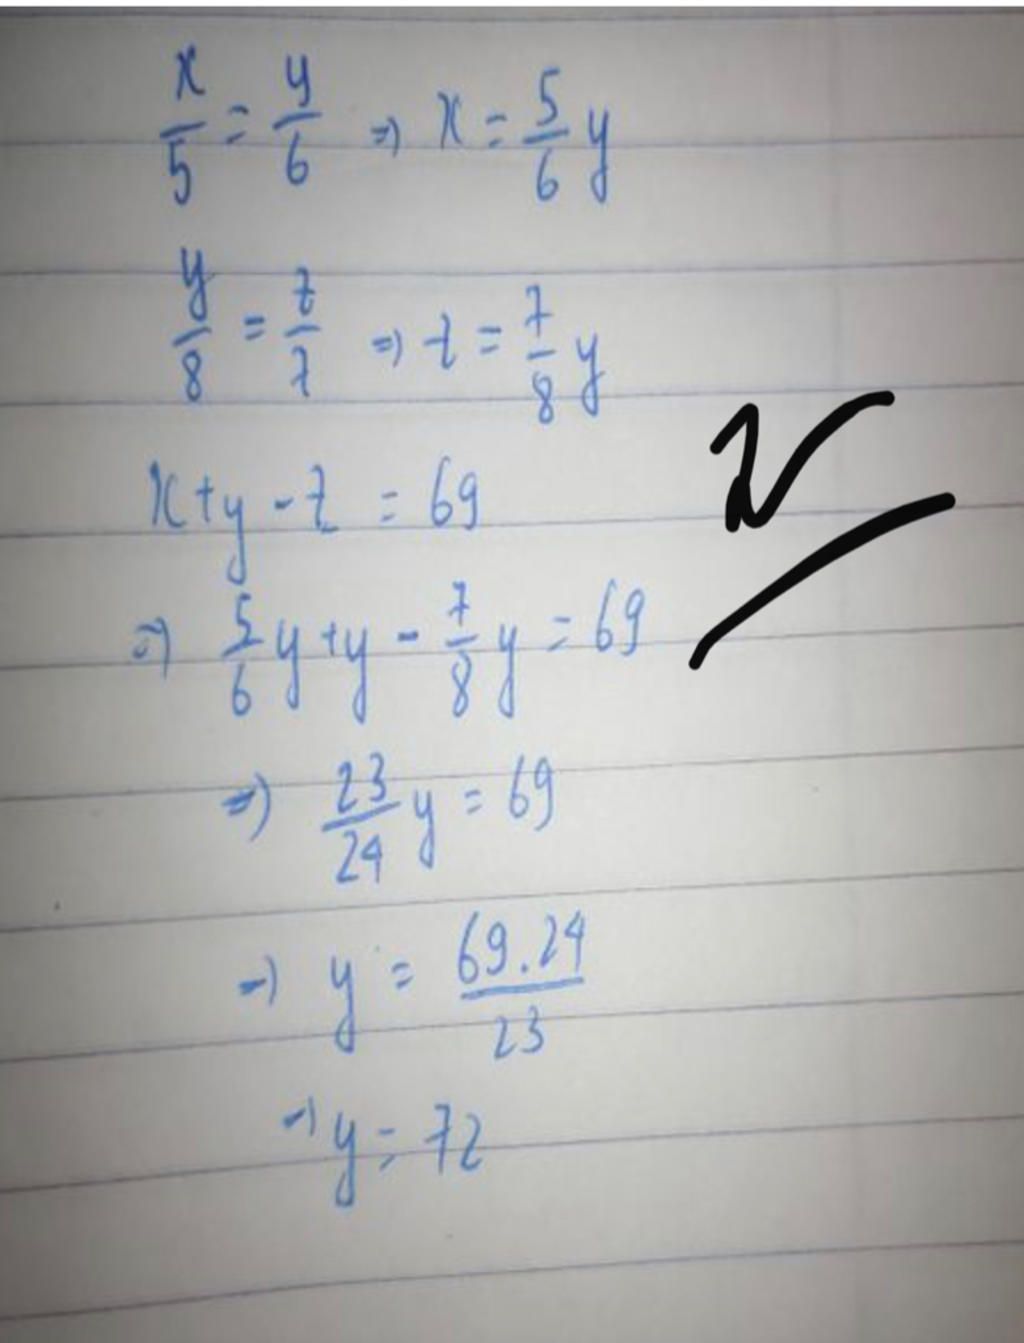 x/5 = y/6 => x = 5/6 y
y/8 = z/7 => z = 7/8 y
x + y - z = 69
=> 5/6 y + y - 7/8 y = 69
=> 23/24 y = 69
=> y = 69.24/23
=> y = 72